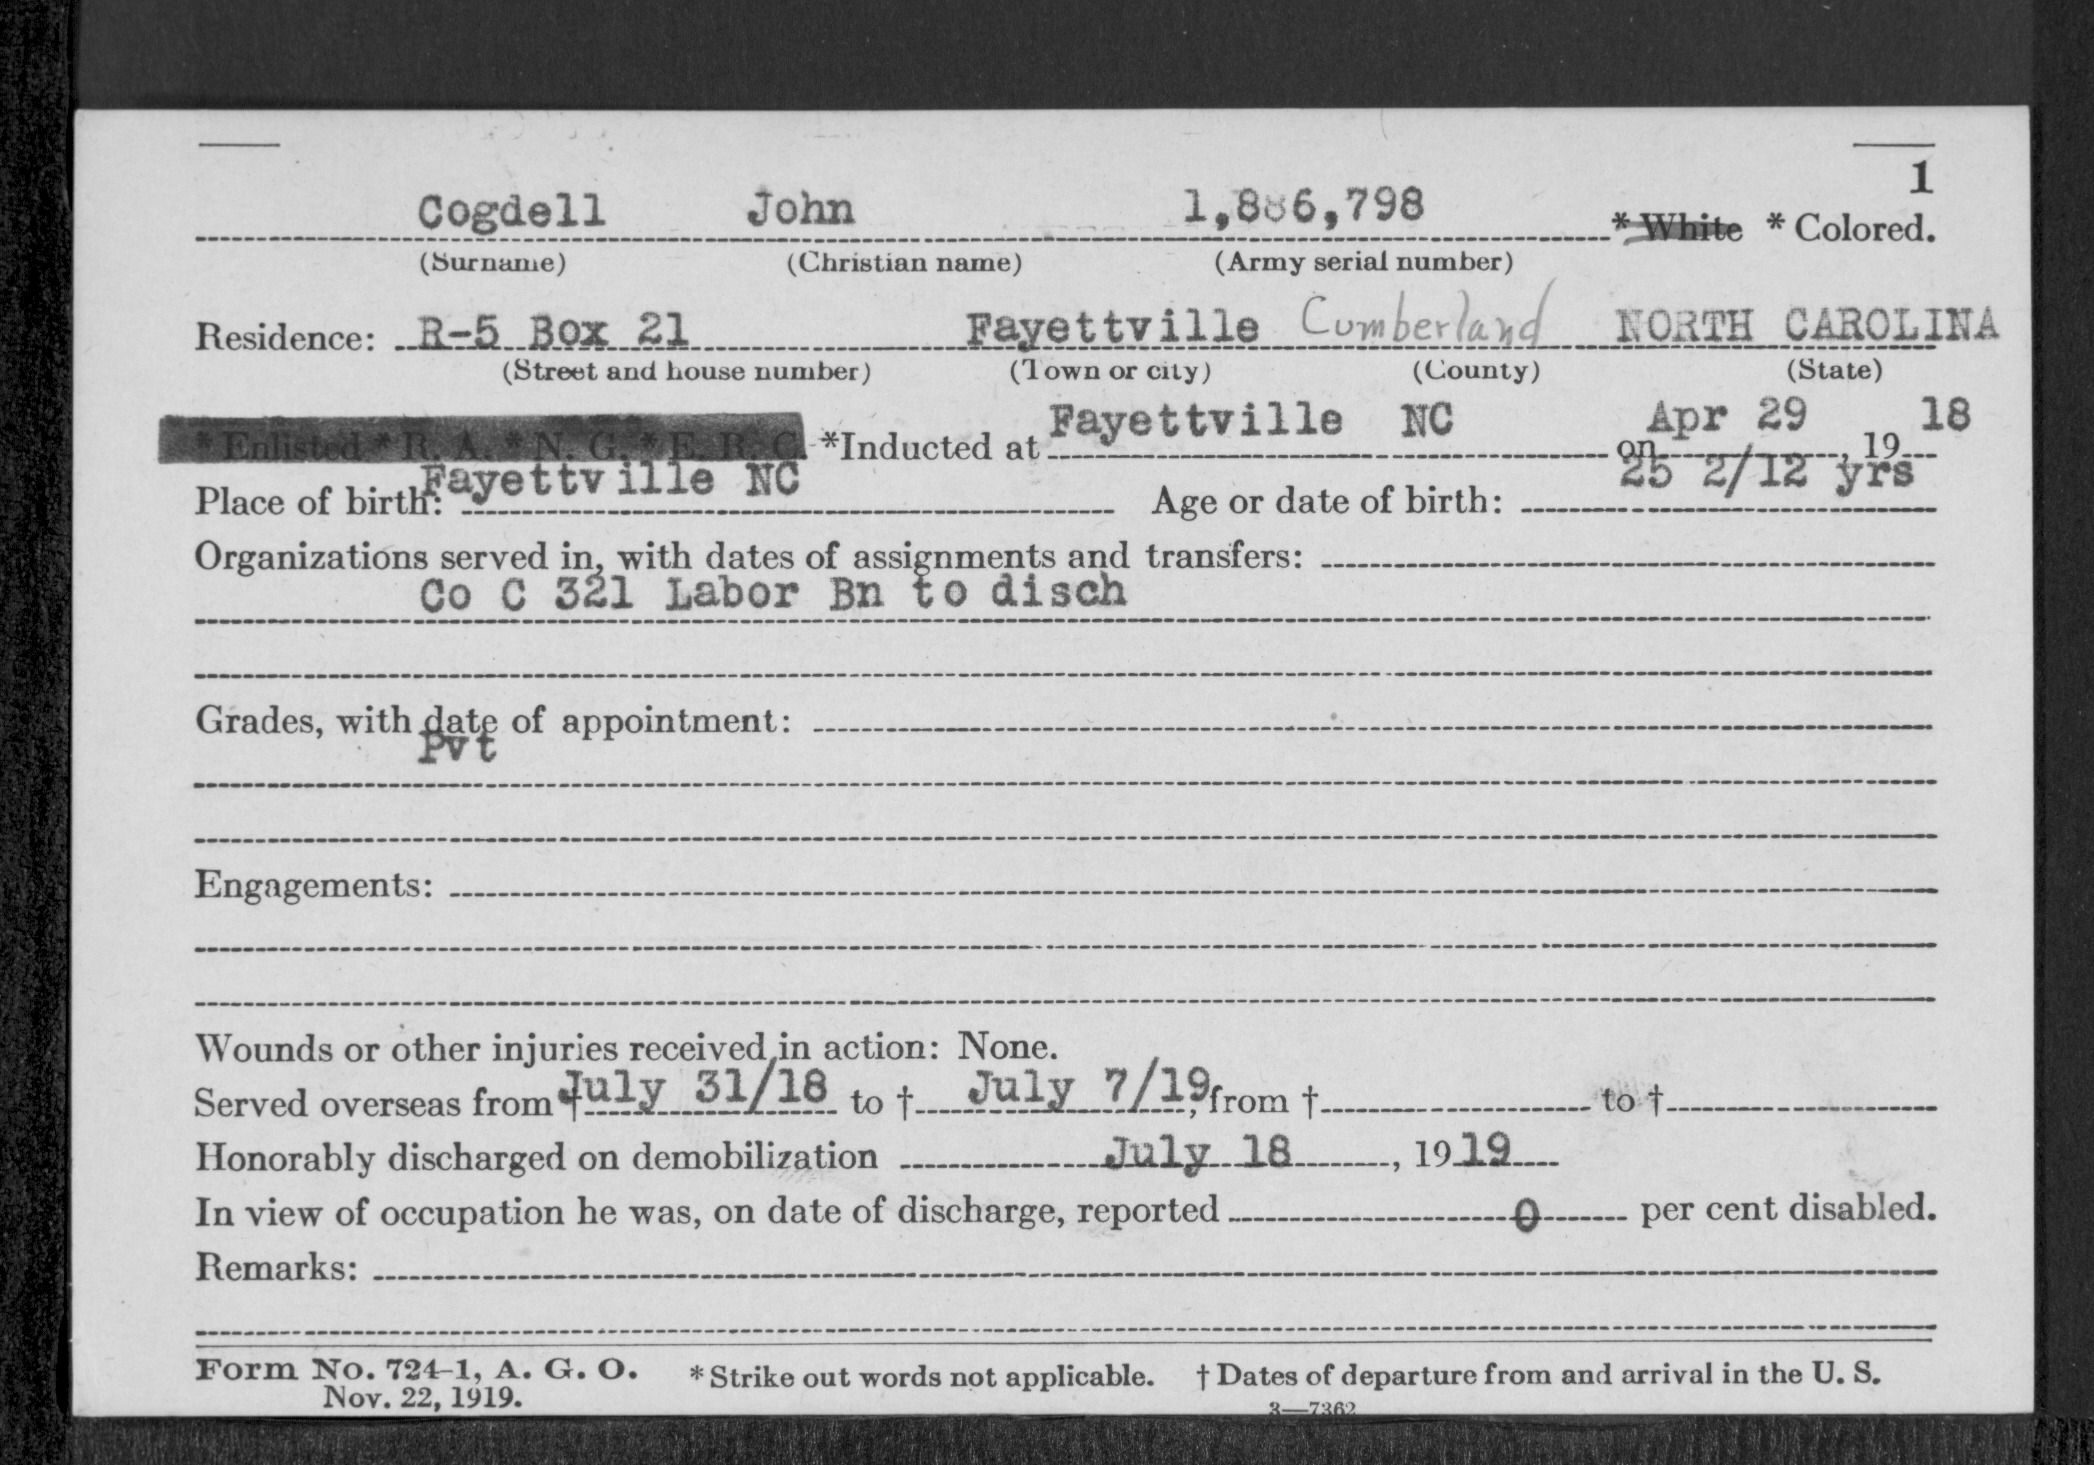 1
Cogdell John 1,886,798 * White * Colored.
(Surname) (Christian name) (Army serial number)
Residence: R-5 Box 21 Fayettville Cumberland NORTH CAROLINA
(Street and house number) (Town or city) (County) (State)
* Enlisted * R. A. * N. G. * E. R. C. *Inducted at Fayettville NC on Apr 29, 19 18
Place of birth: Fayettville NC Age or date of birth: 25 2/12 yrs
Organizations served in, with dates of assignments and transfers:
Co C 321 Labor Bn to disch
Grades, with date of appointment:
Pvt
Engagements:
Wounds or other injuries received in action: None.
Served overseas from † July 31/18 to † July 7/19, from † to †
Honorably discharged on demobilization July 18, 19 19
In view of occupation he was, on date of discharge, reported 0 per cent disabled.
Remarks:
Form No. 724-1, A. G. O. * Strike out words not applicable. † Dates of departure from and arrival in the U. S.
Nov. 22, 1919. 3—7362